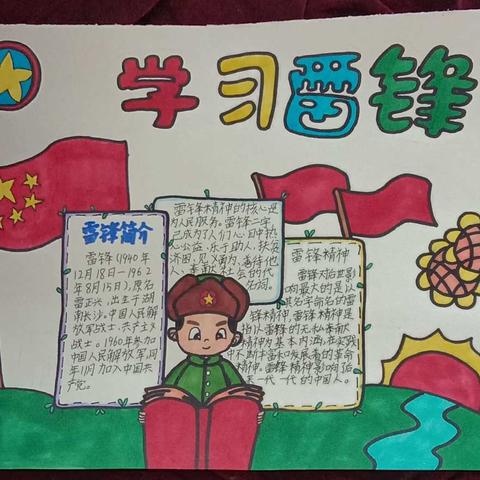 学习雷锋
雷锋简介
雷锋(1940年
12月18日—1962
年8月15日),原名
雷正兴,出生于湖
南长沙,中国人民解
放军战士、共产主义
战士。1960年参加
中国人民解放军,同
年11月加入中国共
产党。
雷锋精神的核心是
为人民服务。雷锋二字
已成为人们心目中热
心公益、乐于助人、扶贫
济困、见义勇为、善待他
人、奉献社会的代
名词。
雷锋精神
雷锋对后世影
响最大的是以
其名字命名的雷
锋精神,雷锋精神是
指以雷锋的无私奉献
精神为基本内涵,在实践
中不断丰富和发展着的革命
精神。雷锋精神影响了
一代一代的中国人。